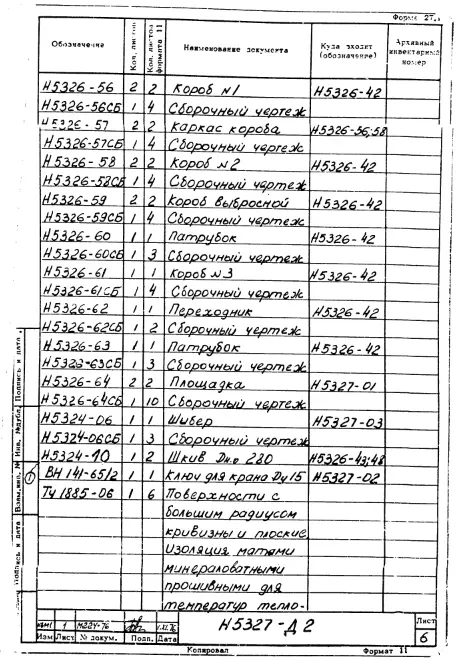 Форма 27
Обозначение Кол. листов Кол. листов формата 11 Наименование документа Куда входит (обозначение) Архивный инвентарный номер
Н5326-56 2 2 Короб №1 Н5326-42
Н5326-56СБ 1 4 Сборочный чертеж
Н5326-57 2 2 Каркас короба Н5326-56;58
Н5326-57СБ 1 4 Сборочный чертеж
Н5326-58 2 2 Короб №2 Н5326-42
Н5326-58СБ 1 4 Сборочный чертеж
Н5326-59 2 2 Короб выбросной Н5326-42
Н5326-59СБ 1 4 Сборочный чертеж
Н5326-60 1 1 Патрубок Н5326-42
Н5326-60СБ 1 3 Сборочный чертеж
Н5326-61 1 1 Короб №3 Н5326-42
Н5326-61СБ 1 4 Сборочный чертеж
Н5326-62 1 1 Переходник Н5326-42
Н5326-62СБ 1 2 Сборочный чертеж
Н5326-63 1 1 Патрубок Н5326-42
Н5326-63СБ 1 3 Сборочный чертеж
Н5326-64 2 2 Площадка Н5327-01
Н5326-64СБ 1 10 Сборочный чертеж
Н5324-06 1 1 Шибер Н5327-03
Н5324-06СБ 1 3 Сборочный чертеж
Н5324-10 1 2 Шкив 280 Н5326-43;48
ВН141-65/2 1 1 Ключ для крана Ду15 Н5327-02
Ту1885-06 1 6 Поверхности с
большим радиусом
кривизны и плоские
Изоляция матами
минераловатными
прошивными для
температур тепло-
1 М224-76
Изм Лист № докум. Подп. Дата
Н5327-Д2
Лист
6
Копировал Формат 11
Подпись и дата Взам.инв. № Инв. №дубл. Подпись и дата
1